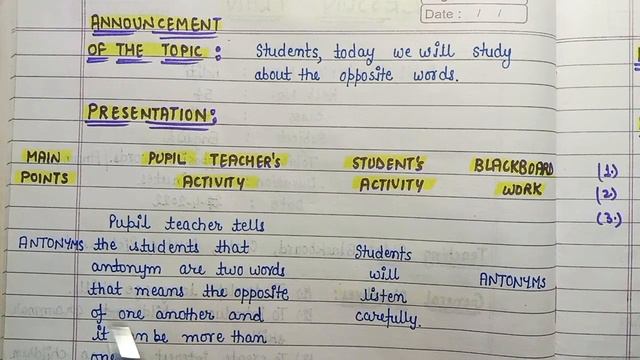 Date : / /
ANNOUNCEMENT
OF THE TOPIC : Students, today we will study
about the opposite words.
PRESENTATION:
MAIN PUPIL TEACHER'S STUDENT'S BLACKBOARD
POINTS ACTIVITY ACTIVITY WORK
(1.)
(2.)
(3.)
Pupil teacher tells
ANTONYMS the students that Students
antonym are two words will ANTONYMS
that means the opposite listen
of one another and carefully.
it be more than